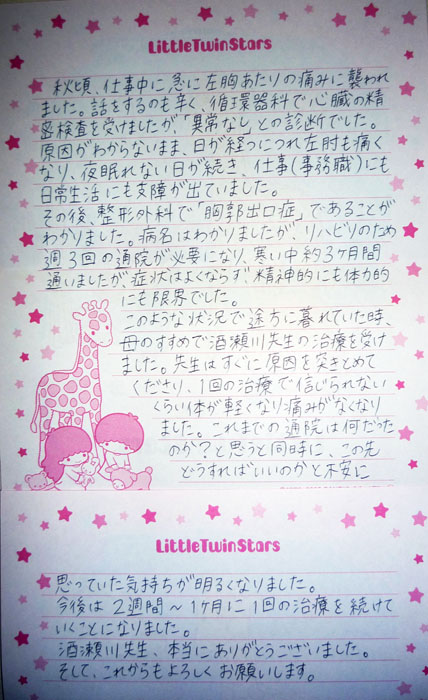 LittleTwinStars
秋頃、仕事中に急に左胸あたりの痛みに襲われ
ました。話をするのも辛く、循環器科で心臓の精
密検査を受けましたが、「異常なし」との診断でした。
原因がわからないまま、日が経つにつれ左肘も痛く
なり、夜眠れない日が続き、仕事(事務職)にも
日常生活にも支障が出ていました。
その後、整形外科で「胸郭出口症」であることが
わかりました。病名はわかりましたが、リハビリのため
週3回の通院が必要になり、寒い中約3ヶ月間
通いましたが症状はよくならず、精神的にも体力的
にも限界でした。
このような状況で途方に暮れていた時、
母のすすめで酒瀬川先生の治療を受け
ました。先生はすぐに原因を突きとめて
くださり、1回の治療で信じられない
くらい体が軽くなり痛みがなくなり
ました。これまでの通院は何だった
のか?と思うと同時に、この先
どうすればいいのかと不安に
LittleTwinStars
思っていた気持ちが明るくなりました。
今後は2週間〜1ヶ月に1回の治療を続けて
いくことになりました。
酒瀬川先生、本当にありがとうございました。
そして、これからもよろしくお願いします。